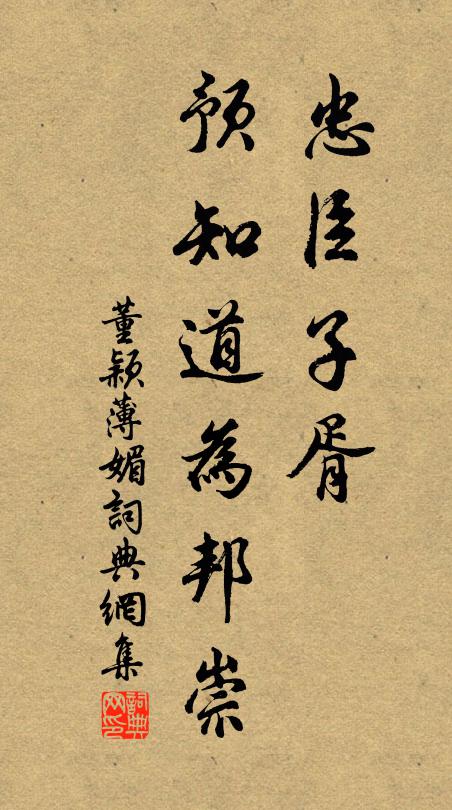 忠臣子胥
預知道為邦祟
董穎薄媚詞典網集
詞典
网印